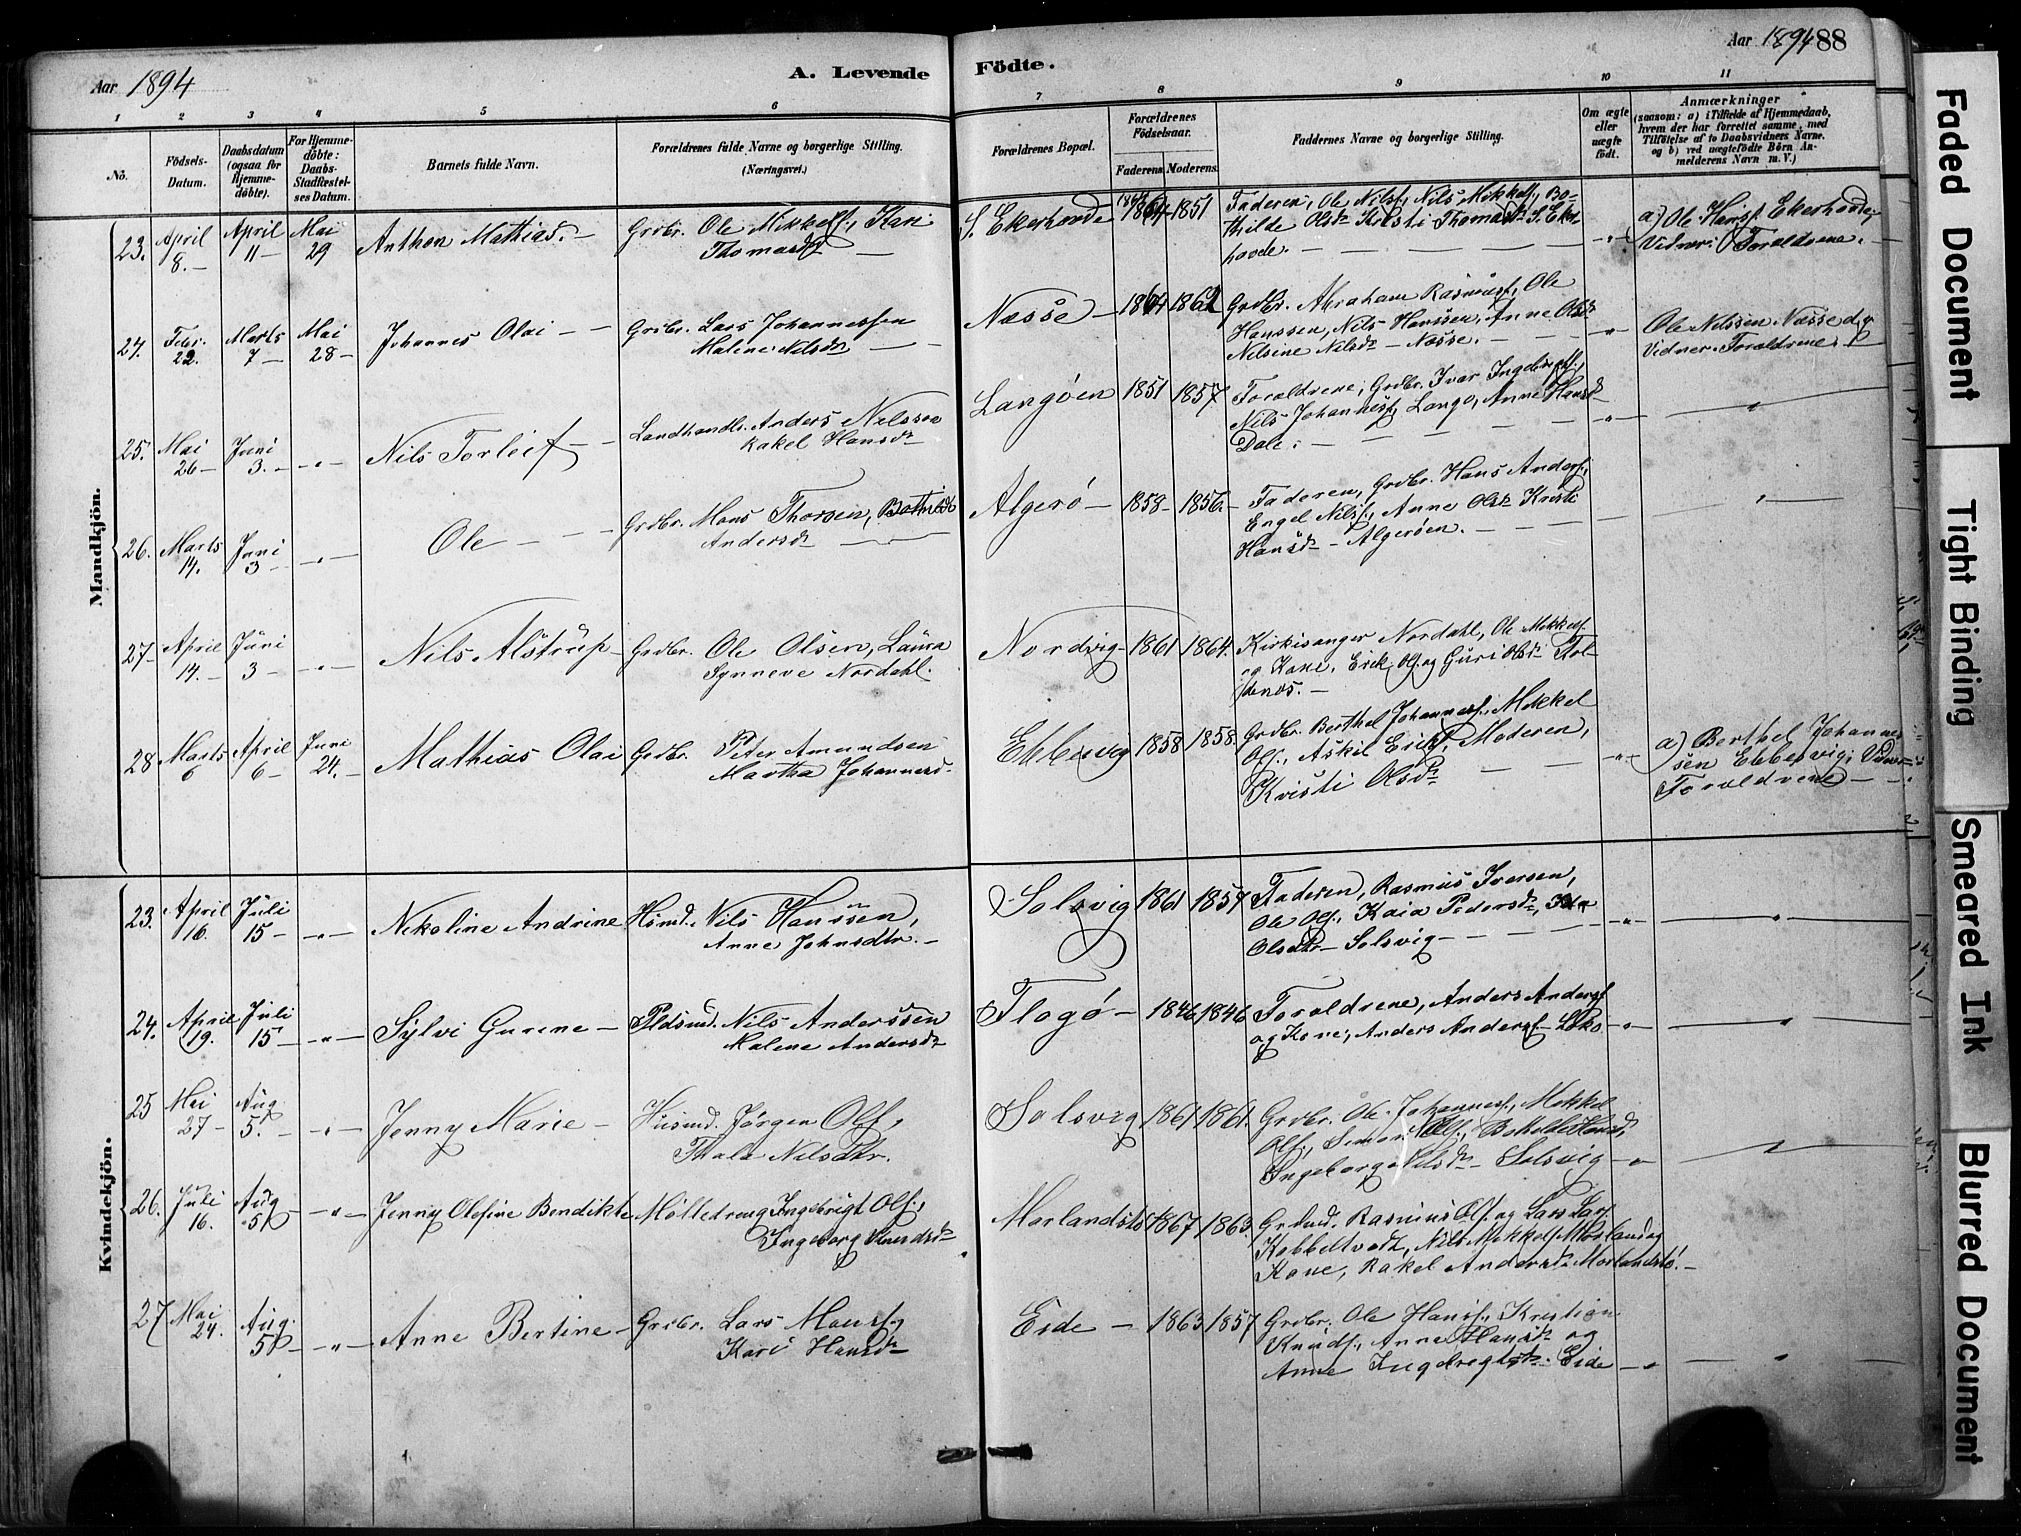 Aar 1894
A. Levende
Födte.
Aar 1894 88
1 2 3 4 5 6 7 8 9 10 11
No.
Födsels-
Datum.
Daabsdatum
(ogsaa for
Hjemme-
döbte).
For Hjemme-
döbte:
Daabs-
Stadfæstel-
ses Datum.
Barnets fulde Navn.
Forældrenes fulde Navne og borgerlige Stilling.
(Næringsvei.)
Forældrenes Bopæl.
Forældrenes
Födselsaar.
Faderens Moderens.
Faddernes Navne og borgerlige Stilling.
Om ægte
eller
uægte
födt.
Anmærkninger
(saasom: a) i Tilfælde af Hjemmedaab,
hvem der har forrettet samme, med
Tilföielse af to Daabsvidners Navne.
og b) ved uægtefödte Börn An-
melderens Navn m. V.)
Mandkjön.
23. April 8. April 11 Mai 29 Anthon Mathias. Grdbr. Ole Mikkels., Kari
Thomasd.
S. Ekerhovde 1851
Faderen, Ole Nilss., Nils Mikkels., Bo-
thilde Olsdr Kristi Thomasdr S. Eker-
hovde.
a) Ole Hanss. Ekerhovde,
Vidner: Forældrene.
24. Febr. 22. Marts 7 Mai 28 Johannes Olai Grdbr. Lars Johannessen
Malene Nilsdr
Næsse 1864 1862
Grdbr. Abraham Rasmuss., Ole
Hanssen, Nils Hanssen, Anne Olsdr
Nilsine Nilsdr Næsse.
Ole Nilssen Næsse
Vidner Forældrene.
25. Mai 26 Juni 3. Nils Torleif Landhandlr. Anders Nilssen
Rakel Hansdr
Langöen 1851 1857
Forældrene, Grdbr. Ivar Ingebrigts.,
Nils Johanness. Langö, Anne Hansdr
Dale.
26. Marts 14. Juni 3 Ole Grdbr. Mons Thorsen, Bothilde
Andersdr
Algerö 1858 1856.
Faderen, Grdbr. Hans Anders.,
Engel Nilss., Anne Olsdr Kristi
Hansdr Algeröen.
27 April 14. Juni 3 Nils Alstrup Grdbr. Ole Olsen, Laura
Synneve Nordahl.
Nordvig 1861 1864.
Kirkesanger Nordahl, Ole Mikkels.
og Kone, Erik Ols. og Guri Olsdr Tol-
denæs.
28 Marts 6 April 6 Juni 24. Mathias Olai Grdbr. Peter Amundsen
Martha Johannesd.
Ebbesvig 1858 1858.
Grdbr. Berthel Johanness., Mikkel
Ols., Askil Eriks., Moderen,
Kristi Olsdr
a) Berthel Johannes-
sen Ebbesvig; Vidner
Forældrene
Kvindekjön.
23. April 16. Juli 15 Nikoline Andrine Husmd. Nils Hanssen,
Anne Johnsdtr.
Solsvig 1861 1857
Faderen, Rasmus Iversen,
Ole Ols., Kaia Pedersdr, Ida
Olsdtr Solsvig
24. April 19. Juli 15 Sylvi Gurine Pldsmd. Nils Anderssen
Malene Andersdr
Flogö 1846 1846
Forældrene, Anders Anders.
og Kone, Anders Anders. Lökö
25 Mai 27 Aug. 5. Jenny Marie Husmd. Jørgen Ols.,
Thala Nilsdtr.
Solsvig 1861 1861.
Grdbr. Ole Johanness., Mikkel
Ols., Simon Ols.,
Ingeborg Nilsdr Solsvig
26. Juli 16. Aug. 5 Jenny Olefine Bendikte Mølledreng Ingebrigt Ols.,
Ingeborg
Morlandstö 1867 1863
Grdmd. Rasmus Ols. og Lars Lars.
Kobbeltvedt, Nils Mikkels. Morland og
Kone, Rakel Andersdr Morlandstö.
27 Mai 24. Aug. 5 Anne Bertine Grdbr. Lars Monss.,
Kari Hansdr
Eide 1863 1857
Grdbr. Ole Hanss., Kristian
Knuds., Anne Hansdr og
Anne Ingebregtsdr. Eide
Faded Document
Tight Binding
Smeared Ink
Blurred Document